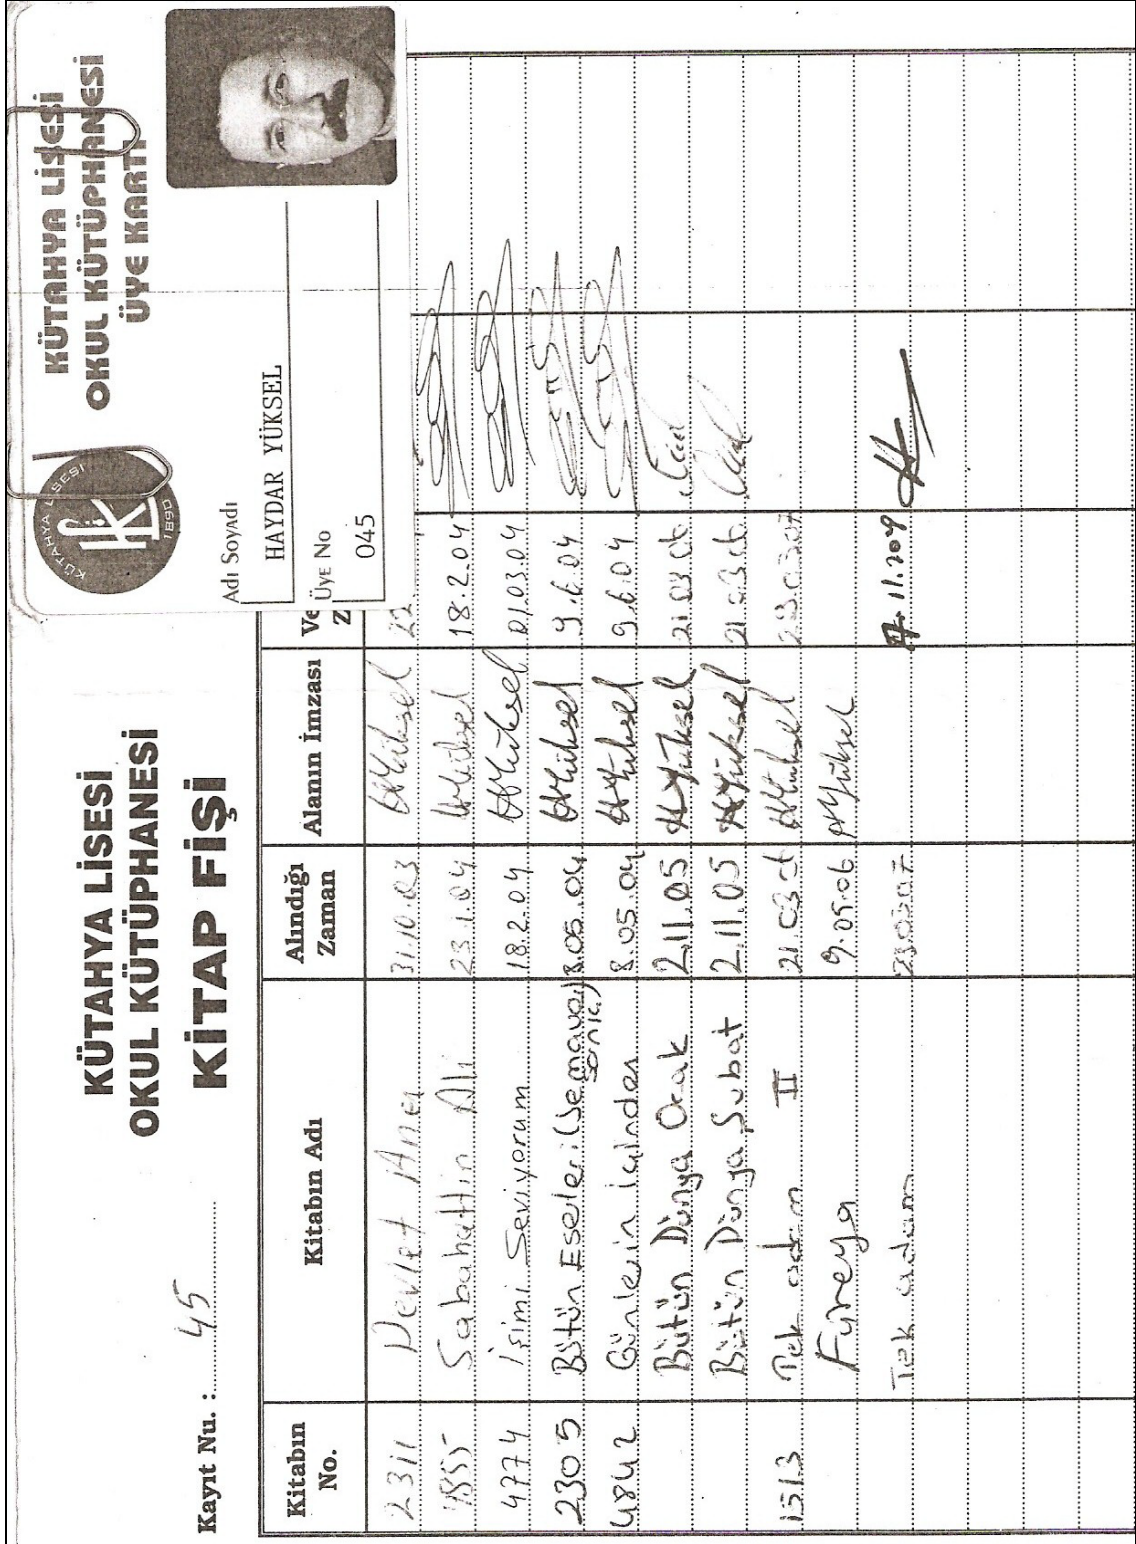 KÜTAHYA LİSESİ
OKUL KÜTÜPHANESİ
KİTAP FİŞİ
Kayıt Nu. : 45
KÜTAHYA LİSESİ
OKUL KÜTÜPHANESİ
ÜYE KARTI
KÜTAHYA LİSESİ
1890
Adı Soyadı
HAYDAR YÜKSEL
Üye No
045
Kitabın No. Kitabın Adı Alındığı Zaman Alanın İmzası Ve Z
2311 Devlet Ana 31.10.03 HYüksel 22
4855 Sabahattin Ali 23.1.04 HYüksel 18.2.04
4774 İşimi Seviyorum 18.2.04 HYüksel 01.03.04
2305 Bütün Eserleri (Semaver, Sarnıç) 8.05.04 HYüksel 9.6.04
4842 Günlerin İçinden 8.05.04 HYüksel 9.6.04
Bütün Dünya Ocak 2.11.05 HYüksel 21 03 06
Bütün Dünya Şubat 2.11.05 HYüksel 21 03 06
1513 Tek adam II 21.03 06 HYüksel 23.03.07
Füreya 9.05.06 HYüksel
Tek adam 23.03.07 11.2009